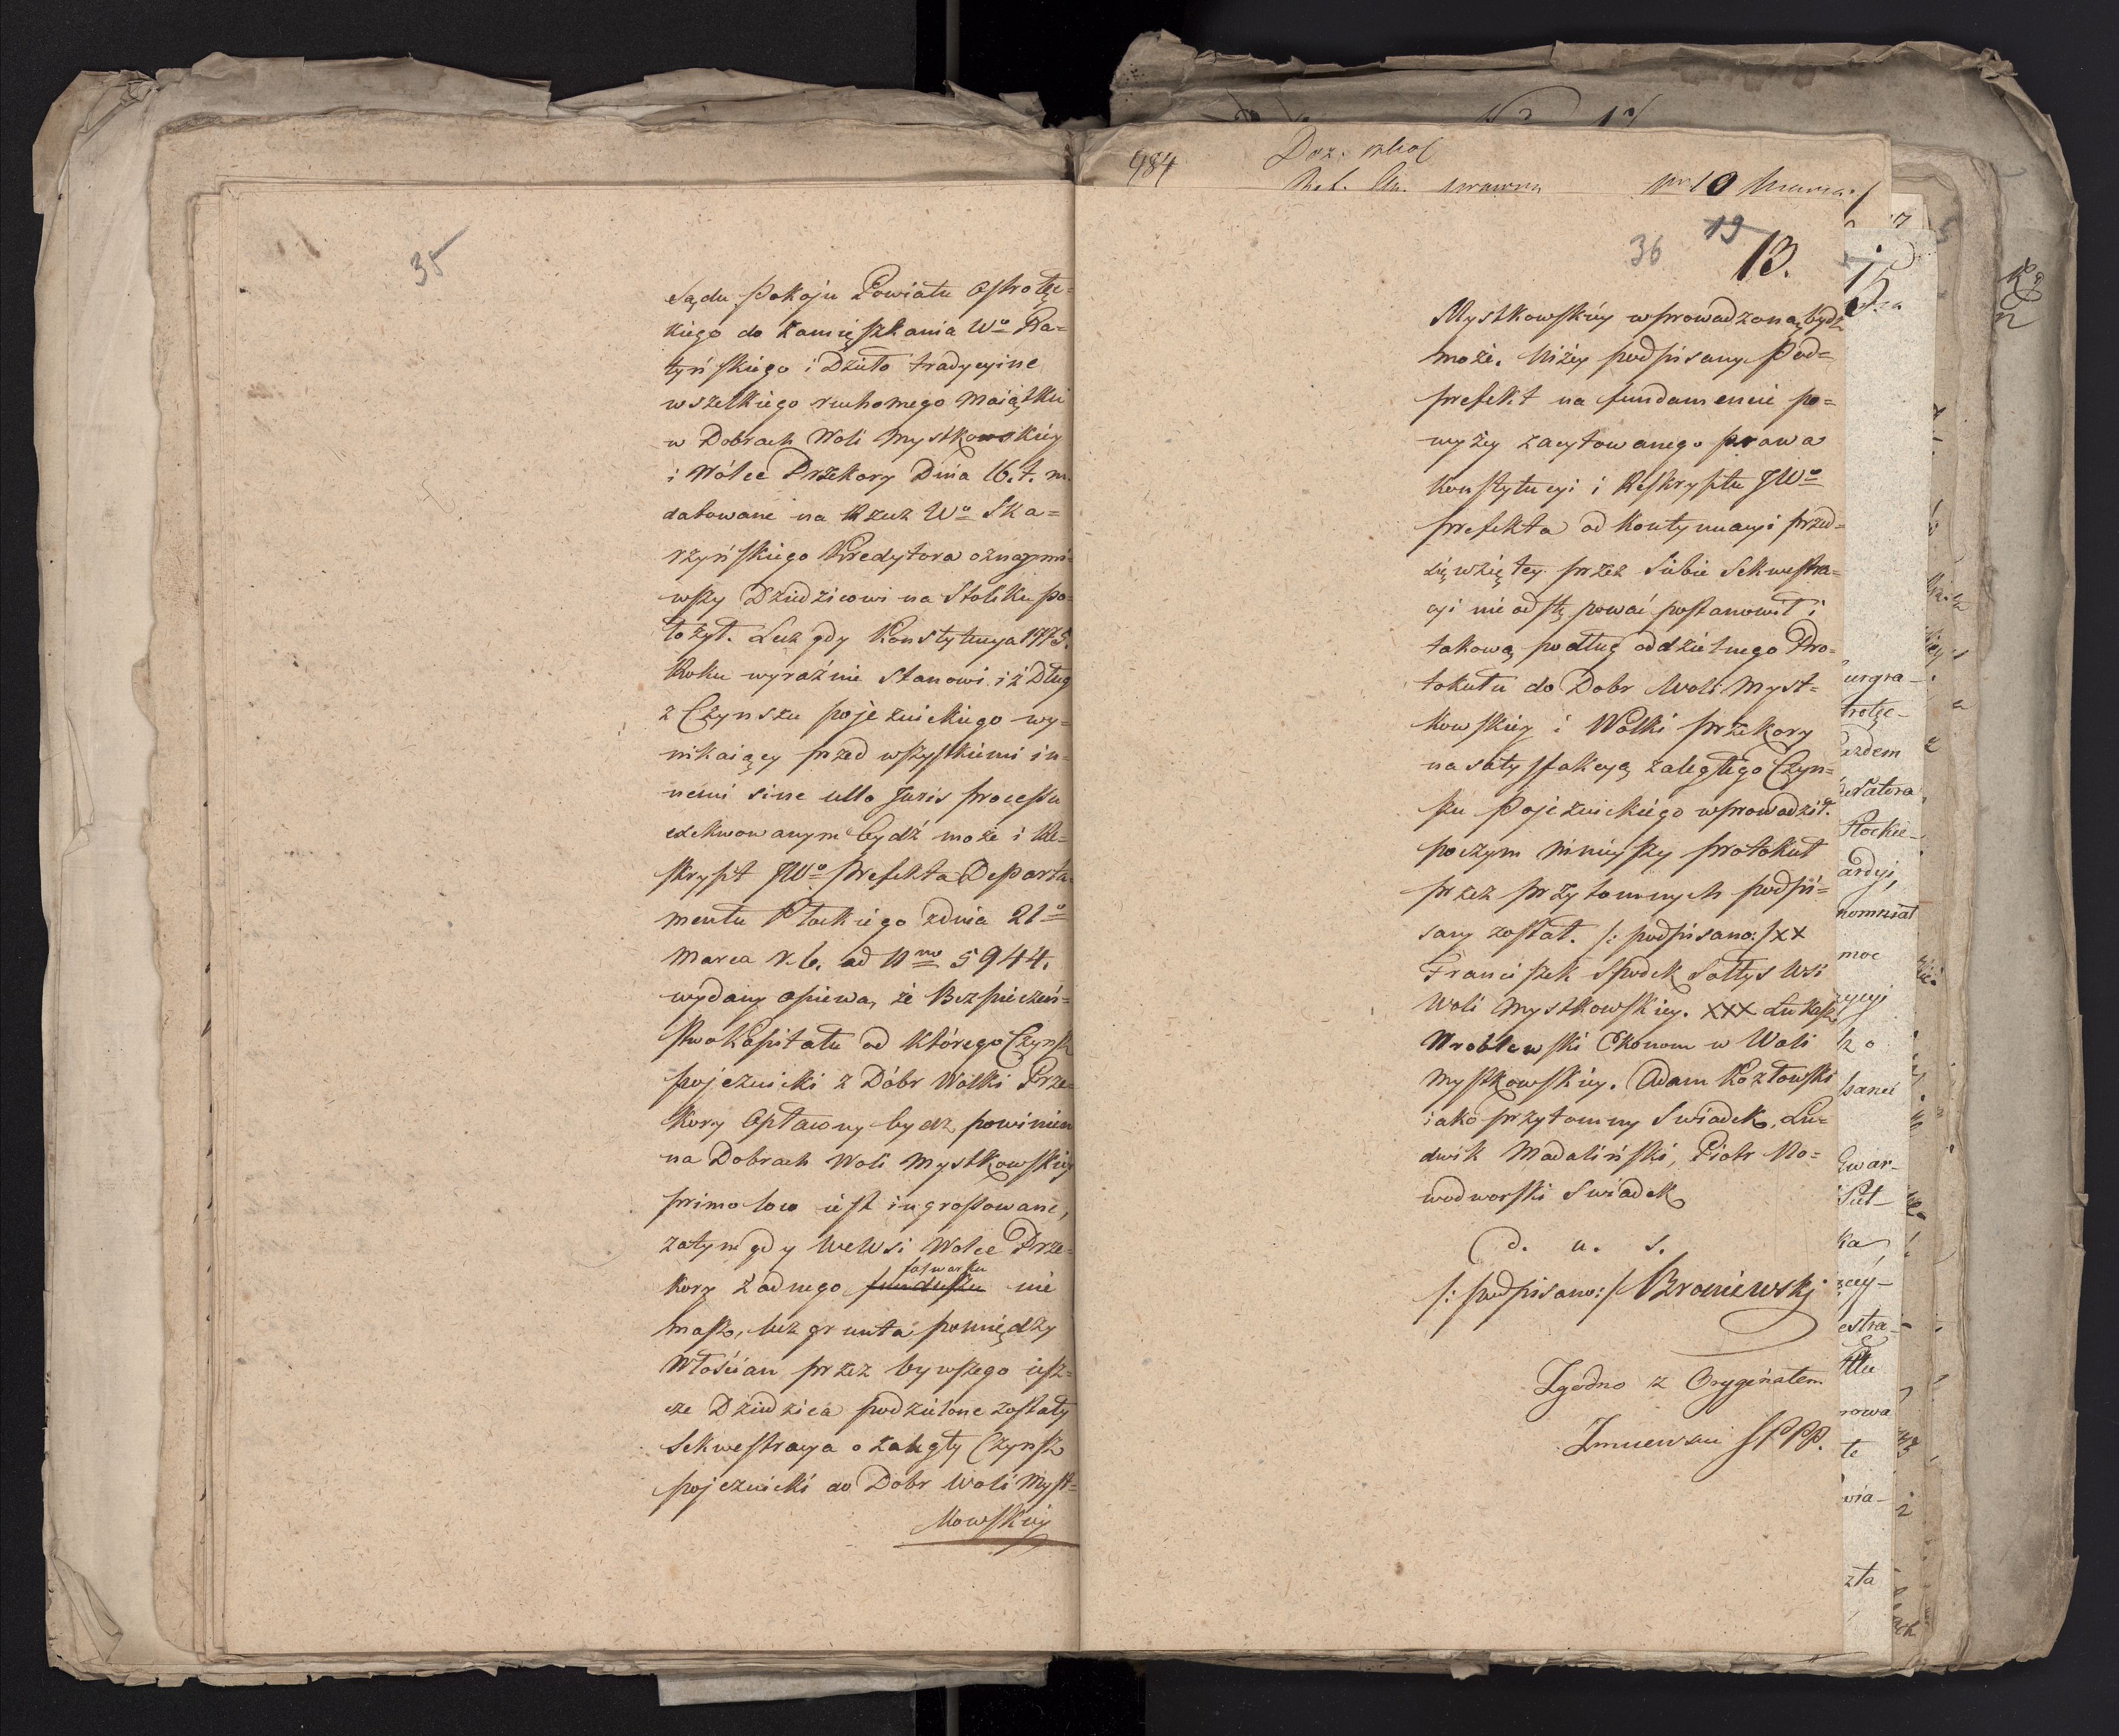 35
Sądu Pokoju Powiatu Ostrołęc=
kiego do zamięszkania Wo Ra=
tyńskiego i Dzieło tradycyine
wszelkiego ruchomego Maiątku
w Dobrach Woli Mystkowskiéy
i Wólce Przekory Dnia 16. t. m.
datowane na Rzecz Wo Ska=
rzyńskiego Kredytora oznaymi=
wszy Dziedzicowi na Stoliku po=
łożył. Lecz gdy Konstytucya 1775.
Roku wyraźnie Stanowi iż Dług
z Czynszu pojezuickiego wy=
nikaiący przed wszystkiemi in=
nemi sine ullo Juris processu
exekwowanym bydź może i Re=
skrypt JWo Prefekta Departa=
mentu Płockiego zdnia 21o
Marca r. b. ad Nro 5944.
wydany opiewa, że Bezpieczeń=
stwo Kapitału od którego Czynsz
pojezuicki z Dóbr Wólki Prze=
kory Opłacony bydz powinien
na Dobrach Woli Mystkowskiéy
primo loco iest ingrossowane,
zatym gdy we Wsi Wolce Prze=
folwarku
kory żadnego funduszu nie
masz, lecz grunta pomiędzy
Włościan przez bywszego iesz=
cze Dziedzica podzielone zostały
Sekwestracya o zaległy Czynsz
pojezuicki do Dobr Woli Myst=
kowskiéy
984
36 19 13.
Mystkowskiéy wprowadzoną bydź
może. Niżey podpisany Pod=
prefekt na fundamencie po=
wyżey zacytowanego prawa
Konstytucyi i Reskryptu JWo
Prefekta od kontynuacyi przed=
sięwziętey przez Siebie Sekwestra=
cyi nieodstępować postanowił i
takową podług oddzielnego Pro=
tokułu do Dobr Woli Myst=
kowskiey i Wolki przekory
na satysfakcyą zaległego Czyn=
szu Pojezuickiego wprowadził.
poczym ninieyszy protokuł
przez przytomnych podpi=
sany został. /: podpisano: / xx
Franciszek Spodek Sołtys Wsi
Woli Mystkowskiey. xxx Łukasz
Wroblewski Ekonom w Woli
Mystkowskiéy. Adam Kozłowski
iako przytomny Swiadek, Lu=
dwik Madaliński, Piotr No=
wodworski Swiadek
d. u. s.
/: podpisano: / Broniewski
Zgodno z Oryginałem